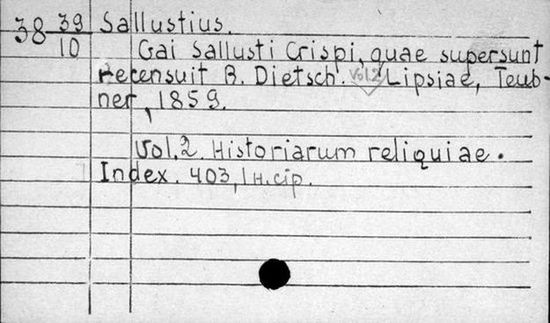 38 39/10 Sallustius.
Gai Sallusti Crispi, quae supersunt
recensuit R. Dietsch. Vol.2 Lipsiae, Teub-
ner, 1859.
Vol. 2. Historiarum reliquiae.
Index. 403, 1 н. стр.